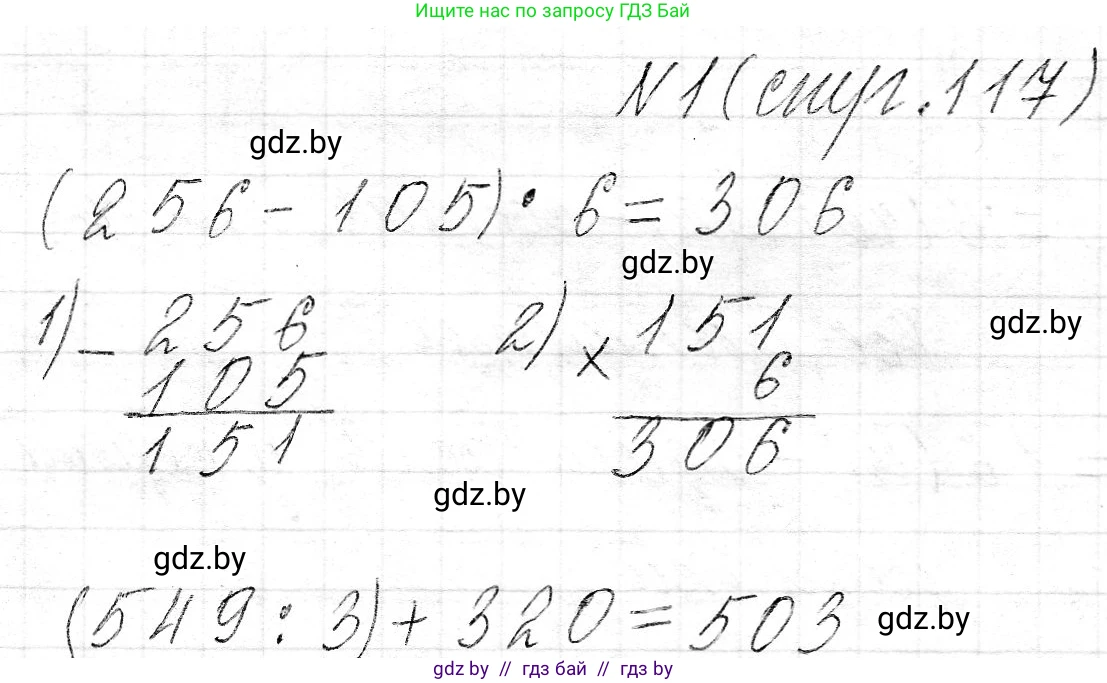 Ищите нас по запросу ГДЗ Бай
N1 (стр. 117)
gdz.by
(256 - 105) · 6 = 306
gdz.by
1) - 256 2) × 151
gdz.by
105 6
151 306
gdz.by
gdz.by
(549 : 3) + 320 = 503
gdz.by
gdz.by // гдз бай // гдз by